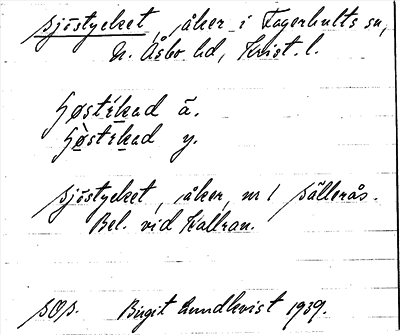 Sjöstycket, åker i Fagerhults sn,
N. Åsbo hd, Krist. l.
ä.
y.
Sjöstycket, åker, nr 1 Sällerås.
Bel. vid Kallran.
SOS. Birgit Lundkvist 1939.